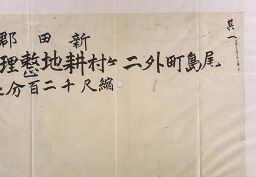 其一
新田郡
尾島町外二ヶ村耕地整理
縮尺千二百分之